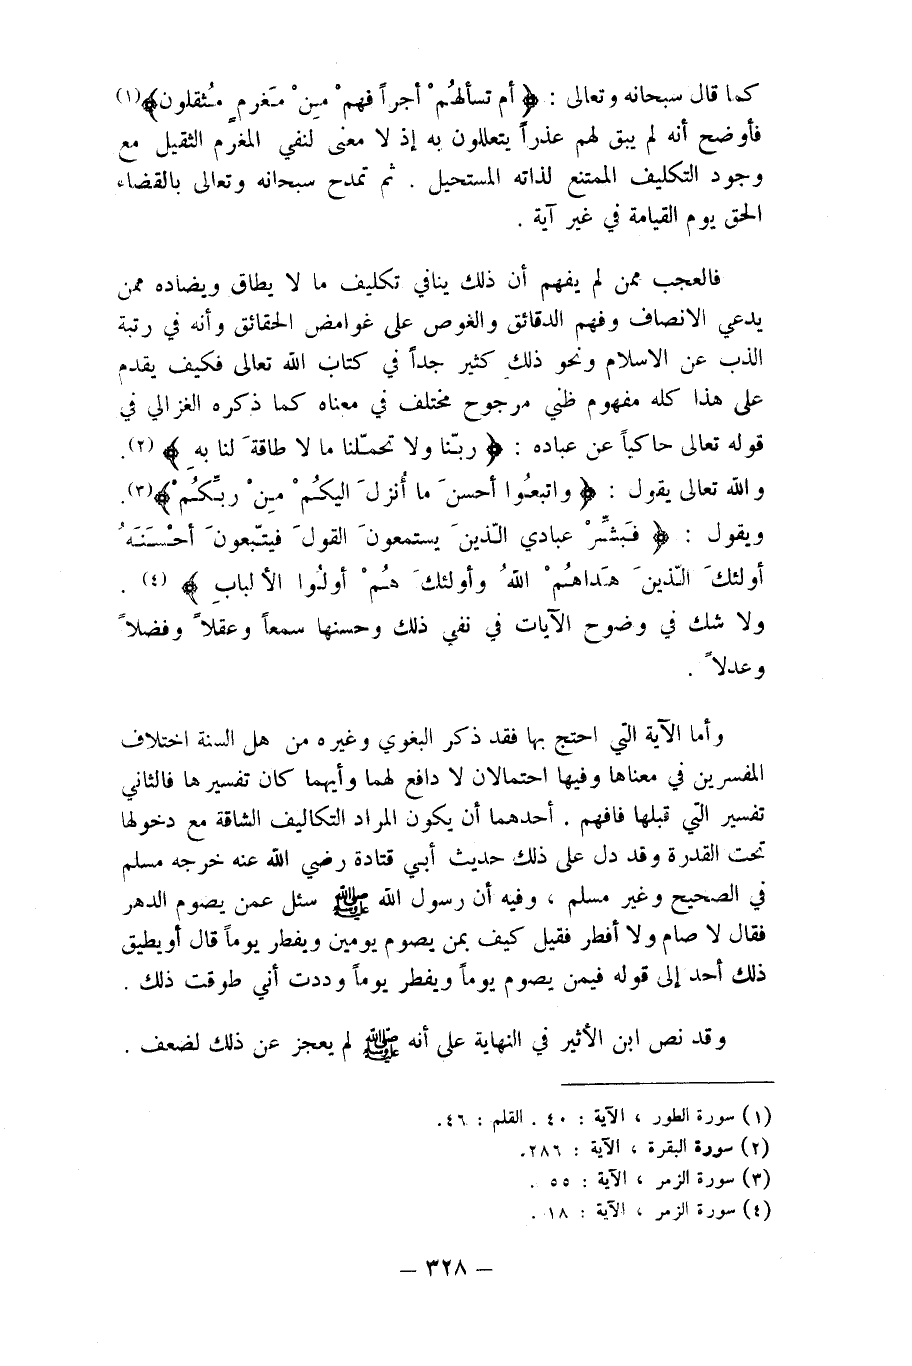 كما قال سبحانه وتعالى : ﴿ أم تسألهُمْ أجراً فهمْ مِنْ مَغرمٍ مُثقلون﴾(١)
فأوضح أنه لم يبق لهم عذراً يتعللون به إذ لا معنى لنفي المغرم الثقيل مع
وجود التكليف الممتنع لذاته المستحيل . ثم تمدح سبحانه وتعالى بالقضاء
الحق يوم القيامة في غير آية .
فالعجب ممن لم يفهم أن ذلك ينافي تكليف ما لا يطاق ويضاده ممن
يدعي الانصاف وفهم الدقائق والغوص على غوامض الحقائق وأنه في رتبة
الذب عن الاسلام ونحو ذلك كثير جداً في كتاب الله تعالى فكيف يقدم
على هذا كله مفهوم ظني مرجوح مختلف في معناه كما ذكره الغزالي في
قوله تعالى حاكياً عن عباده : ﴿ ربّنا ولا تحمّلنا ما لا طاقةَ لنا بهِ ﴾ (٢).
والله تعالى يقول : ﴿ واتبعُوا أحسنَ ما أُنزلَ اليكُمْ مِنْ ربِّكُمْ﴾(٣).
ويقول : ﴿ فَبشِّرْ عبادي الّذينَ يستمعونَ القولَ فيتّبعونَ أحْسَنَهُ
أولئكَ الّذينَ هَداهُمْ اللهُ وأولئكَ هُمْ أولُوا الألبابِ ﴾ (٤) .
ولا شك في وضوح الآيات في نفي ذلك وحسنها سمعاً وعقلاً وفضلاً
وعدلاً .
وأما الآية التي احتج بها فقد ذكر البغوي وغيره من هل السنة اختلاف
المفسرين في معناها وفيها احتمالان لا دافع لهما وأيهما كان تفسيرها فالثاني
تفسير التي قبلها فافهم . أحدهما أن يكون المراد التكاليف الشاقة مع دخولها
تحت القدرة وقد دل على ذلك حديث أبي قتادة رضي الله عنه خرجه مسلم
في الصحيح وغير مسلم ، وفيه أن رسول الله ﷺ سئل عمن يصوم الدهر
فقال لا صام ولا أفطر فقيل كيف بمن يصوم يومين ويفطر يوماً قال أويطيق
ذلك أحد إلى قوله فيمن يصوم يوماً ويفطر يوماً وددت أني طوقت ذلك .
وقد نص ابن الأثير في النهاية على أنه ﷺ لم يعجز عن ذلك لضعف .
(١) سورة الطور ، الآية : ٤٠ . القلم : ٤٦.
(٢) سورة البقرة ، الآية : ٢٨٦.
(٣) سورة الزمر ، الآية : ٥٥ .
(٤) سورة الزمر ، الآية : ١٨ .
– ٣٢٨ –